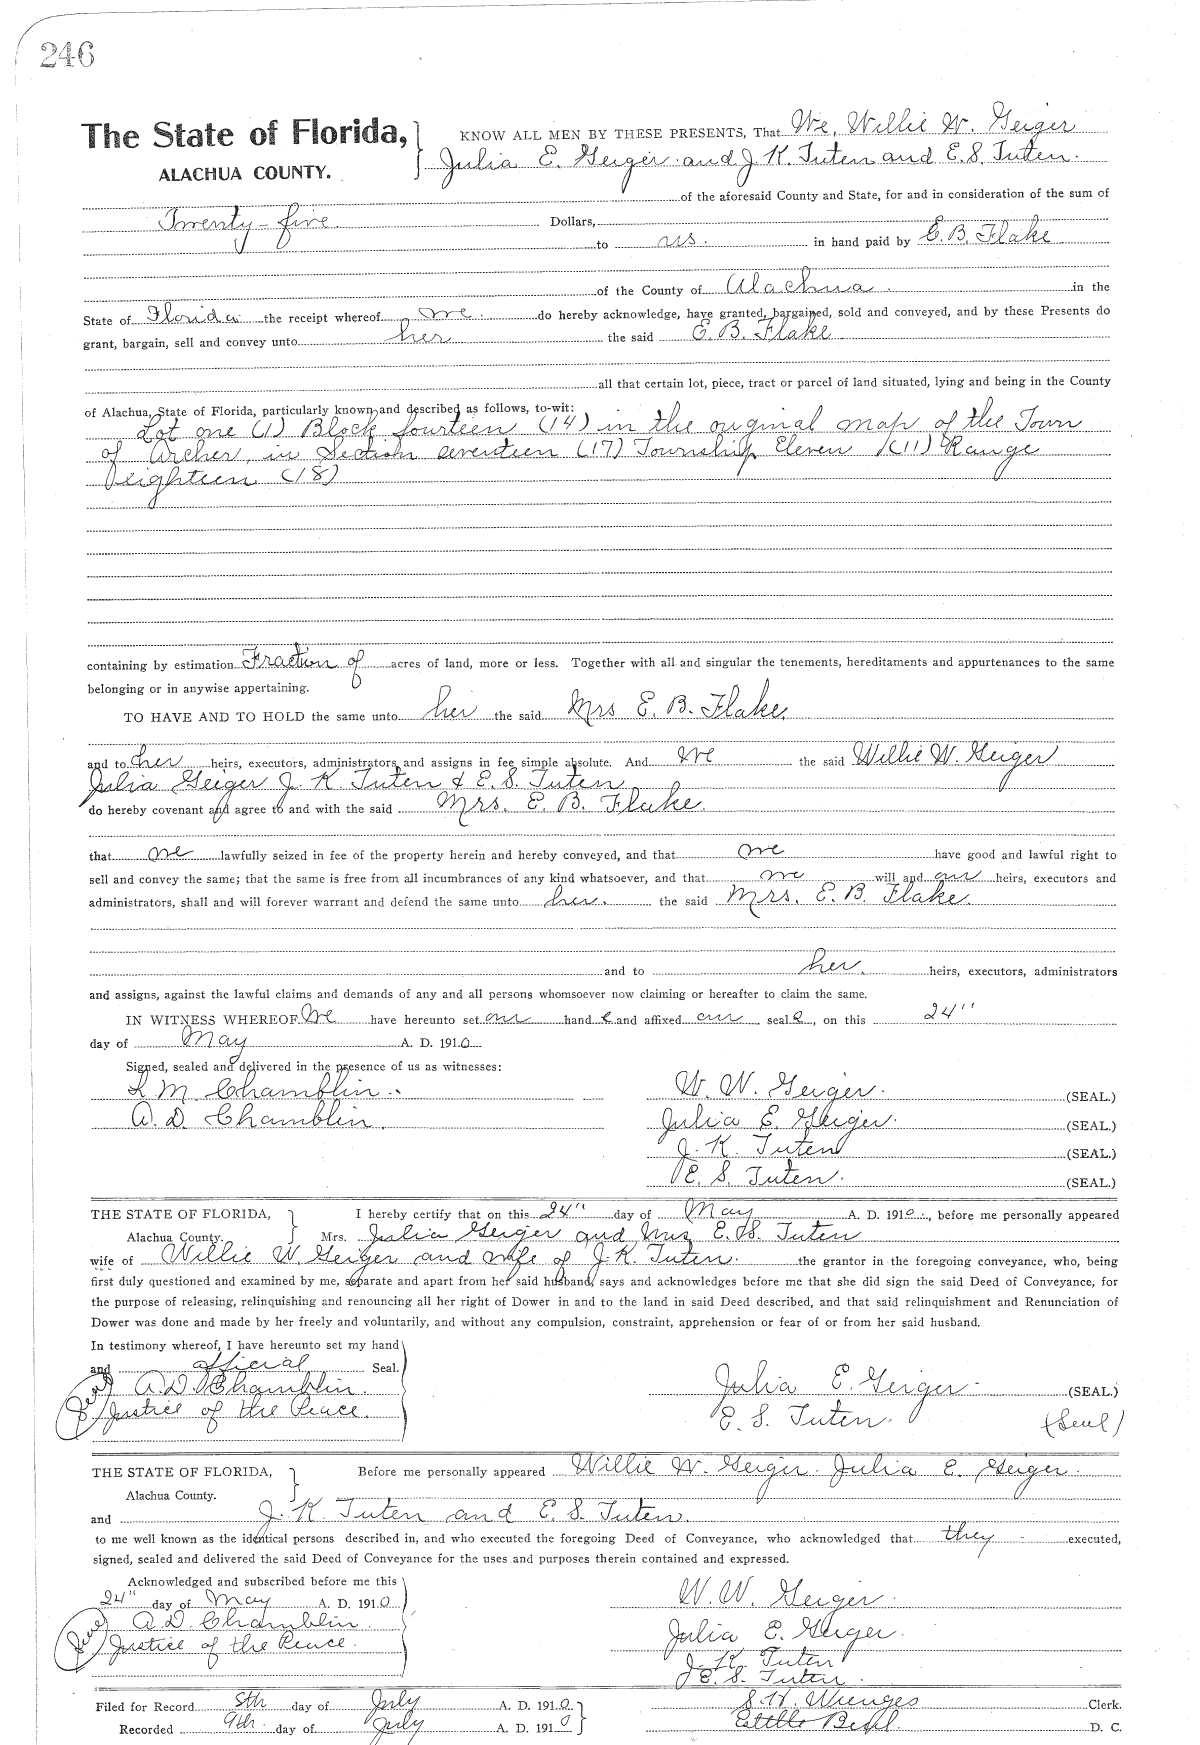 246
The State of Florida, KNOW ALL MEN BY THESE PRESENTS, That We, Willie W. Geiger
ALACHUA COUNTY. Julia E. Geiger and J. K. Tuten and E. S. Tuten.
of the aforesaid County and State, for and in consideration of the sum of
Twenty-five Dollars,
to us. in hand paid by E. B. Flake
of the County of Alachua in the
State of Florida the receipt whereof we do hereby acknowledge, have granted, bargained, sold and conveyed, and by these Presents do
grant, bargain, sell and convey unto her the said E. B. Flake
all that certain lot, piece, tract or parcel of land situated, lying and being in the County
of Alachua, State of Florida, particularly known and described as follows, to-wit:
Lot one (1) Block fourteen (14) in the original map of the Town
of Archer, in Section seventeen (17) Township Eleven (11) Range
eighteen (18)
containing by estimation Fraction of acres of land, more or less. Together with all and singular the tenements, hereditaments and appurtenances to the same
belonging or in anywise appertaining.
TO HAVE AND TO HOLD the same unto her the said Mrs E. B. Flake.
and to her heirs, executors, administrators and assigns in fee simple absolute. And we the said Willie W. Geiger
Julia Geiger J. K. Tuten & E. S. Tuten
do hereby covenant and agree to and with the said Mrs. E. B. Flake.
that we lawfully seized in fee of the property herein and hereby conveyed, and that we have good and lawful right to
sell and convey the same; that the same is free from all incumbrances of any kind whatsoever, and that we will and our heirs, executors and
administrators, shall and will forever warrant and defend the same unto her. the said Mrs. E. B. Flake.
and to her. heirs, executors, administrators
and assigns, against the lawful claims and demands of any and all persons whomsoever now claiming or hereafter to claim the same.
IN WITNESS WHEREOF We have hereunto set our hand s and affixed our seal s, on this 24"
day of May A. D. 1910
Signed, sealed and delivered in the presence of us as witnesses:
L M. Chamblin W. W. Geiger. (SEAL.)
A. D. Chamblin. Julia E. Geiger. (SEAL.)
J. K. Tuten (SEAL.)
E. S. Tuten. (SEAL.)
THE STATE OF FLORIDA, I hereby certify that on this 24" day of May A. D. 1910, before me personally appeared
Alachua County. Mrs. Julia Geiger and Mrs E. S. Tuten
wife of Willie W. Geiger and wife of J. K. Tuten. the grantor in the foregoing conveyance, who, being
first duly questioned and examined by me, separate and apart from her said husband, says and acknowledges before me that she did sign the said Deed of Conveyance, for
the purpose of releasing, relinquishing and renouncing all her right of Dower in and to the land in said Deed described, and that said relinquishment and Renunciation of
Dower was done and made by her freely and voluntarily, and without any compulsion, constraint, apprehension or fear of or from her said husband.
In testimony whereof, I have hereunto set my hand
and official Seal.
Seal A. D. Chamblin. Julia E. Geiger. (SEAL.)
Justice of the Peace. E. S. Tuten. (Seal)
THE STATE OF FLORIDA, Before me personally appeared Willie W. Geiger. Julia E. Geiger.
Alachua County.
and J. K. Tuten and E. S. Tuten.
to me well known as the identical persons described in, and who executed the foregoing Deed of Conveyance, who acknowledged that they executed,
signed, sealed and delivered the said Deed of Conveyance for the uses and purposes therein contained and expressed.
Acknowledged and subscribed before me this
24" day of May A. D. 1910 W. W. Geiger.
Seal A. D. Chamblin Julia E. Geiger.
Justice of the Peace. J. K. Tuten
E. S. Tuten.
Filed for Record 8th day of July A. D. 1910 S. H. Wienges Clerk.
Recorded 9th day of July A. D. 1910 D. C.